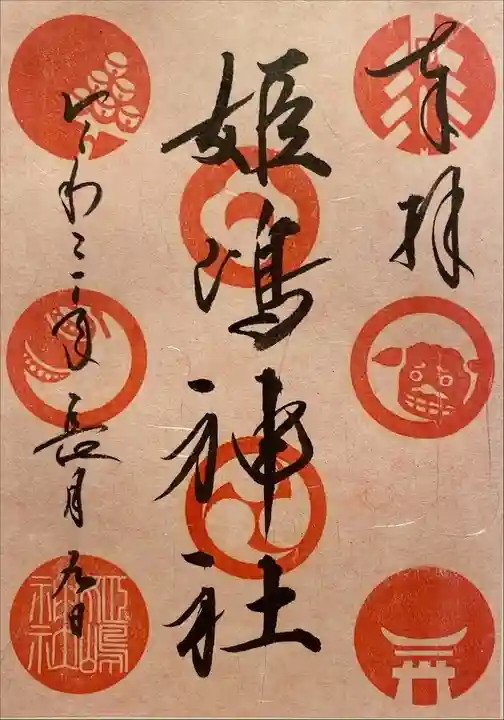 奉拝
姫嶋神社
令和三年 長月 日
姫嶋
神社